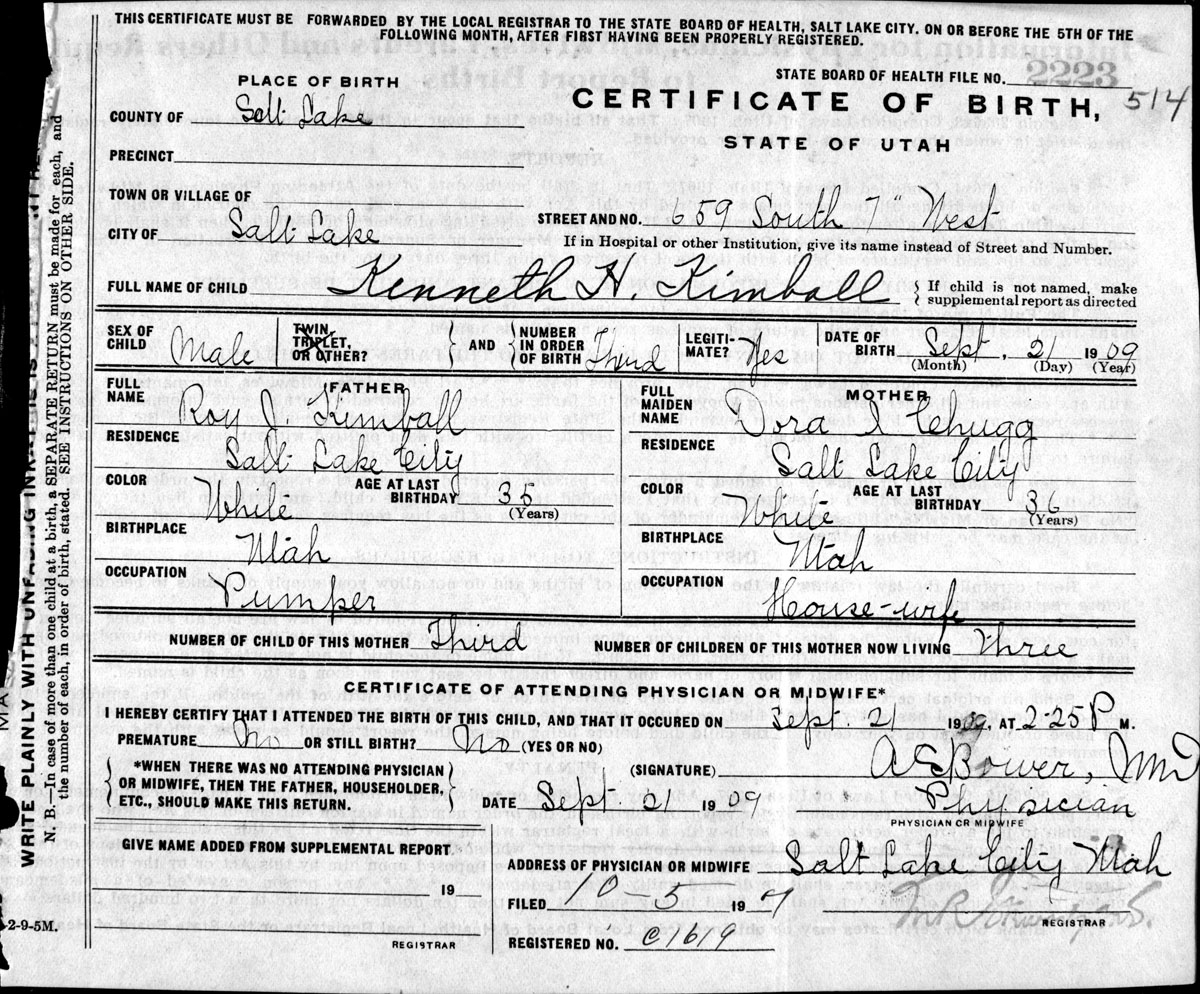 THIS CERTIFICATE MUST BE FORWARDED BY THE LOCAL REGISTRAR TO THE STATE BOARD OF HEALTH, SALT LAKE CITY. ON OR BEFORE THE 5TH OF THE
FOLLOWING MONTH, AFTER FIRST HAVING BEEN PROPERLY REGISTERED.
PLACE OF BIRTH
STATE BOARD OF HEALTH FILE NO. 2223
COUNTY OF Salt Lake
CERTIFICATE OF BIRTH, 514
STATE OF UTAH
PRECINCT
TOWN OR VILLAGE OF
STREET AND NO. 659 South 7" West
CITY OF Salt Lake
If in Hospital or other Institution, give its name instead of Street and Number.
FULL NAME OF CHILD Kenneth H. Kimball { If child is not named, make
supplemental report as directed
SEX OF CHILD Male TWIN TRIPLET, OR OTHER? } AND { NUMBER IN ORDER OF BIRTH Third LEGITI-MATE? Yes DATE OF BIRTH Sept. 21 1909
(Month) (Day) (Year)
(FATHER)
MOTHER
FULL NAME Roy J. Kimball
FULL MAIDEN NAME Dora I Chugg
RESIDENCE Salt Lake City
RESIDENCE Salt Lake City
COLOR White AGE AT LAST BIRTHDAY 35 (Years)
COLOR White AGE AT LAST BIRTHDAY 36 (Years)
BIRTHPLACE Utah
BIRTHPLACE Utah
OCCUPATION Pumper
OCCUPATION House-wife
NUMBER OF CHILD OF THIS MOTHER Third NUMBER OF CHILDREN OF THIS MOTHER NOW LIVING Three
CERTIFICATE OF ATTENDING PHYSICIAN OR MIDWIFE*
I HEREBY CERTIFY THAT I ATTENDED THE BIRTH OF THIS CHILD, AND THAT IT OCCURED ON Sept. 21 1909, AT 2-25 P M.
PREMATURE No OR STILL BIRTH? No (YES OR NO)
*WHEN THERE WAS NO ATTENDING PHYSICIAN
OR MIDWIFE, THEN THE FATHER, HOUSEHOLDER,
ETC., SHOULD MAKE THIS RETURN.
(SIGNATURE) A E Bower, MD
DATE Sept. 21 1909 Physician
PHYSICIAN OR MIDWIFE
GIVE NAME ADDED FROM SUPPLEMENTAL REPORT.
ADDRESS OF PHYSICIAN OR MIDWIFE Salt Lake City Utah
19
FILED 10 5 19
REGISTRAR
REGISTRAR
REGISTERED NO. C1619
2-9-5M.
WRITE PLAINLY WITH UNFADING INK
N. B.—In case of more than one child at a birth, a SEPARATE RETURN must be made for each, and
the number of each, in order of birth, stated. SEE INSTRUCTIONS ON OTHER SIDE.